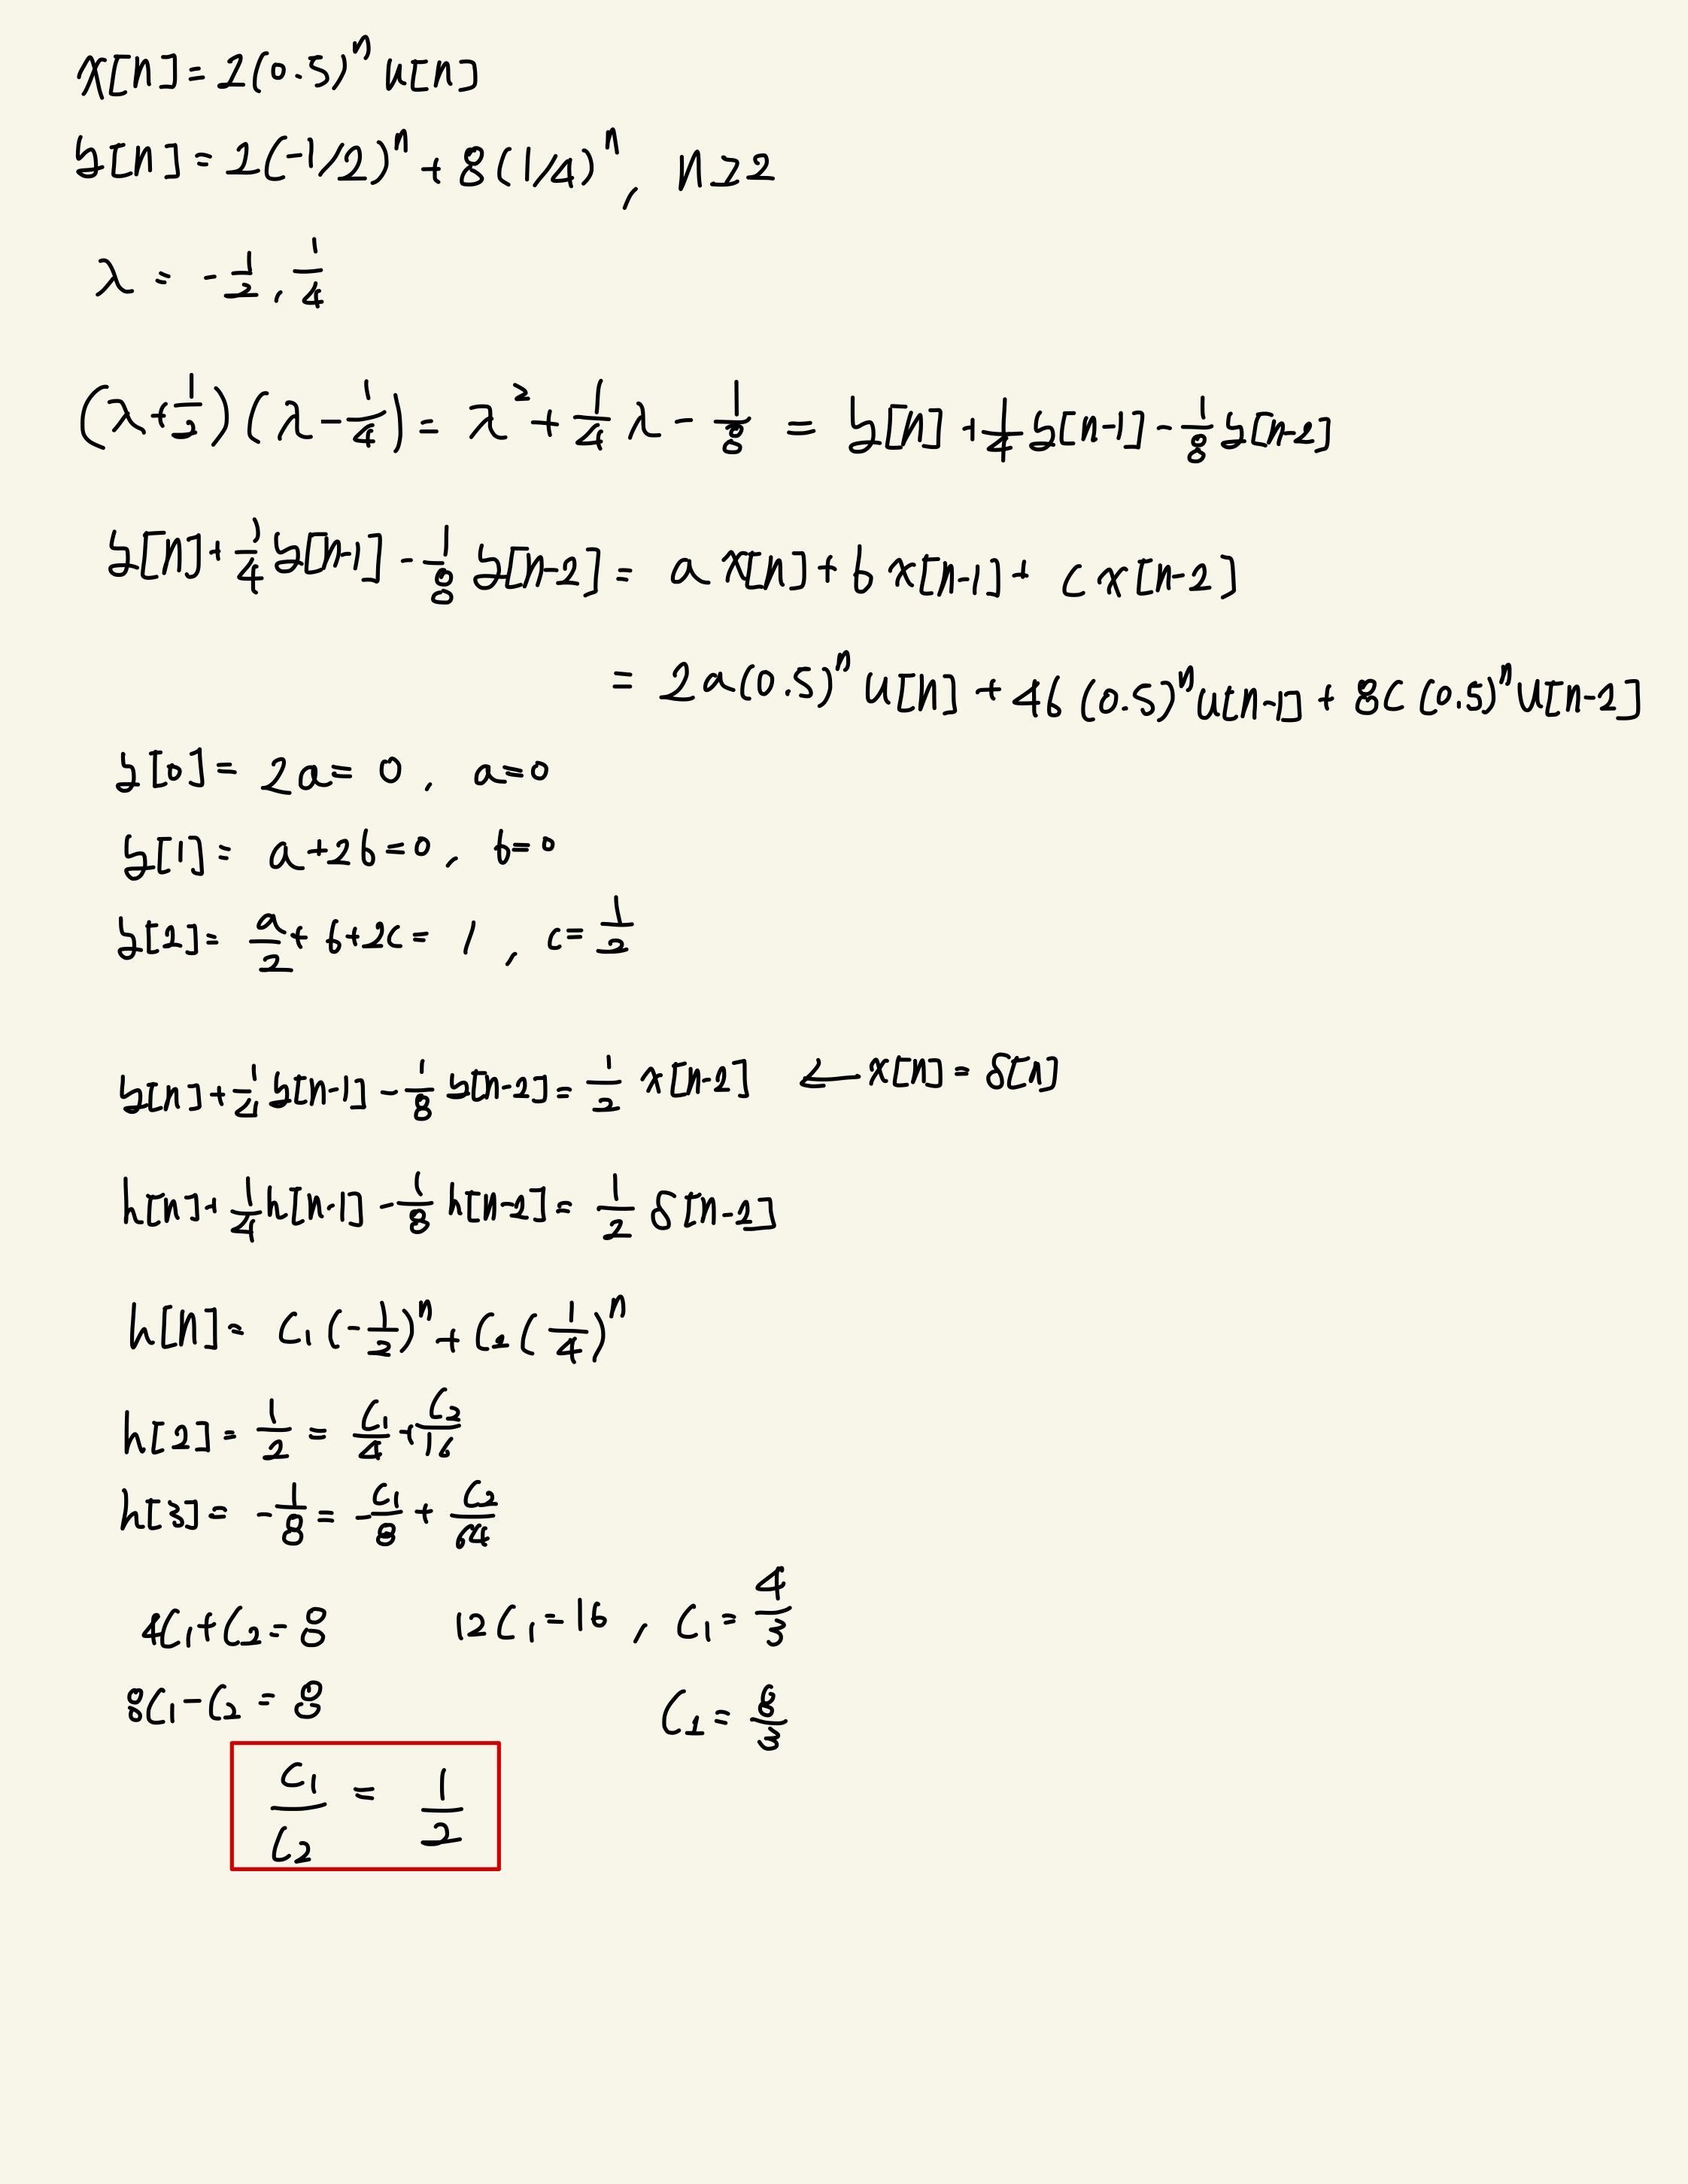 x[n] = 2(0.5)^n u[n]
y[n] = 2(-1/2)^n + 8(1/4)^n, n≥2
λ = -1/2, 1/4
(λ+1/2)(λ-1/4) = λ^2 + 1/4 λ - 1/8 = y[n] + 1/4 y[n-1] - 1/8 y[n-2]
y[n] + 1/4 y[n-1] - 1/8 y[n-2] = a x[n] + b x[n-1] + c x[n-2]
= 2a(0.5)^n u[n] + 4b(0.5)^n u[n-1] + 8c(0.5)^n u[n-2]
y[0] = 2a = 0, a=0
y[1] = a+2b=0, b=0
y[2] = a/2 + b+2c = 1, c = 1/2
y[n] + 1/4 y[n-1] - 1/8 y[n-2] = 1/2 x[n-2] ← x[n] = δ[n]
h[n] + 1/4 h[n-1] - 1/8 h[n-2] = 1/2 δ[n-2]
h[n] = C1(-1/2)^n + C2(1/4)^n
h[2] = 1/2 = C1/4 + C2/16
h[3] = -1/8 = -C1/8 + C2/64
4C1+C2 = 8 12C1 = 16, C1 = 4/3
8C1-C2 = 8 C2 = 8/3
C1/C2 = 1/2